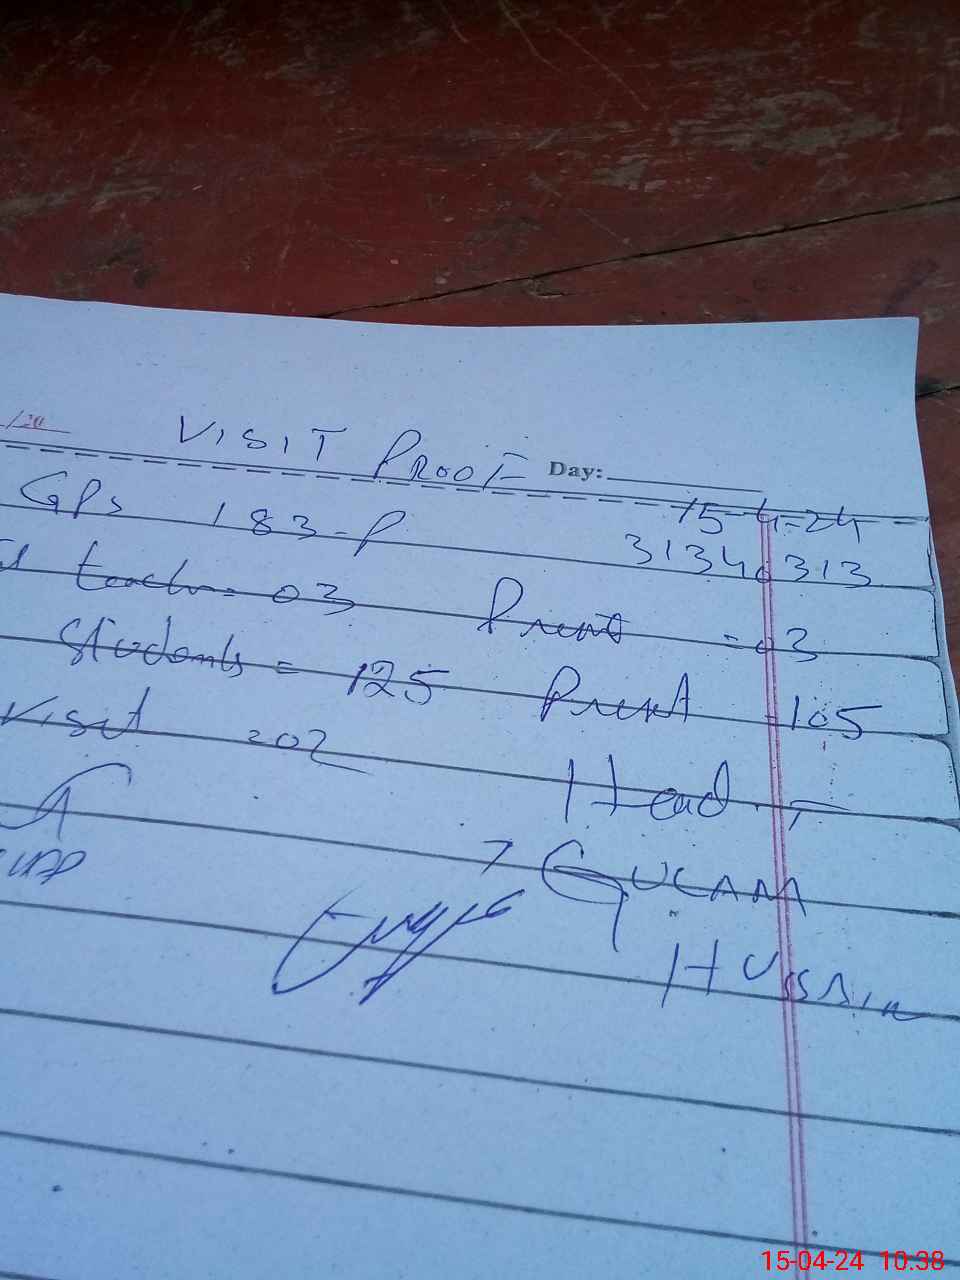 /20
VISIT PROOF Day:
GPS 183-P 15-4-24
31340313
teach = 03 Present = 03
Students = 125 Present = 105
Visit = 02
Head T
GULAM
HUSSAIN
15-04-24 10.38